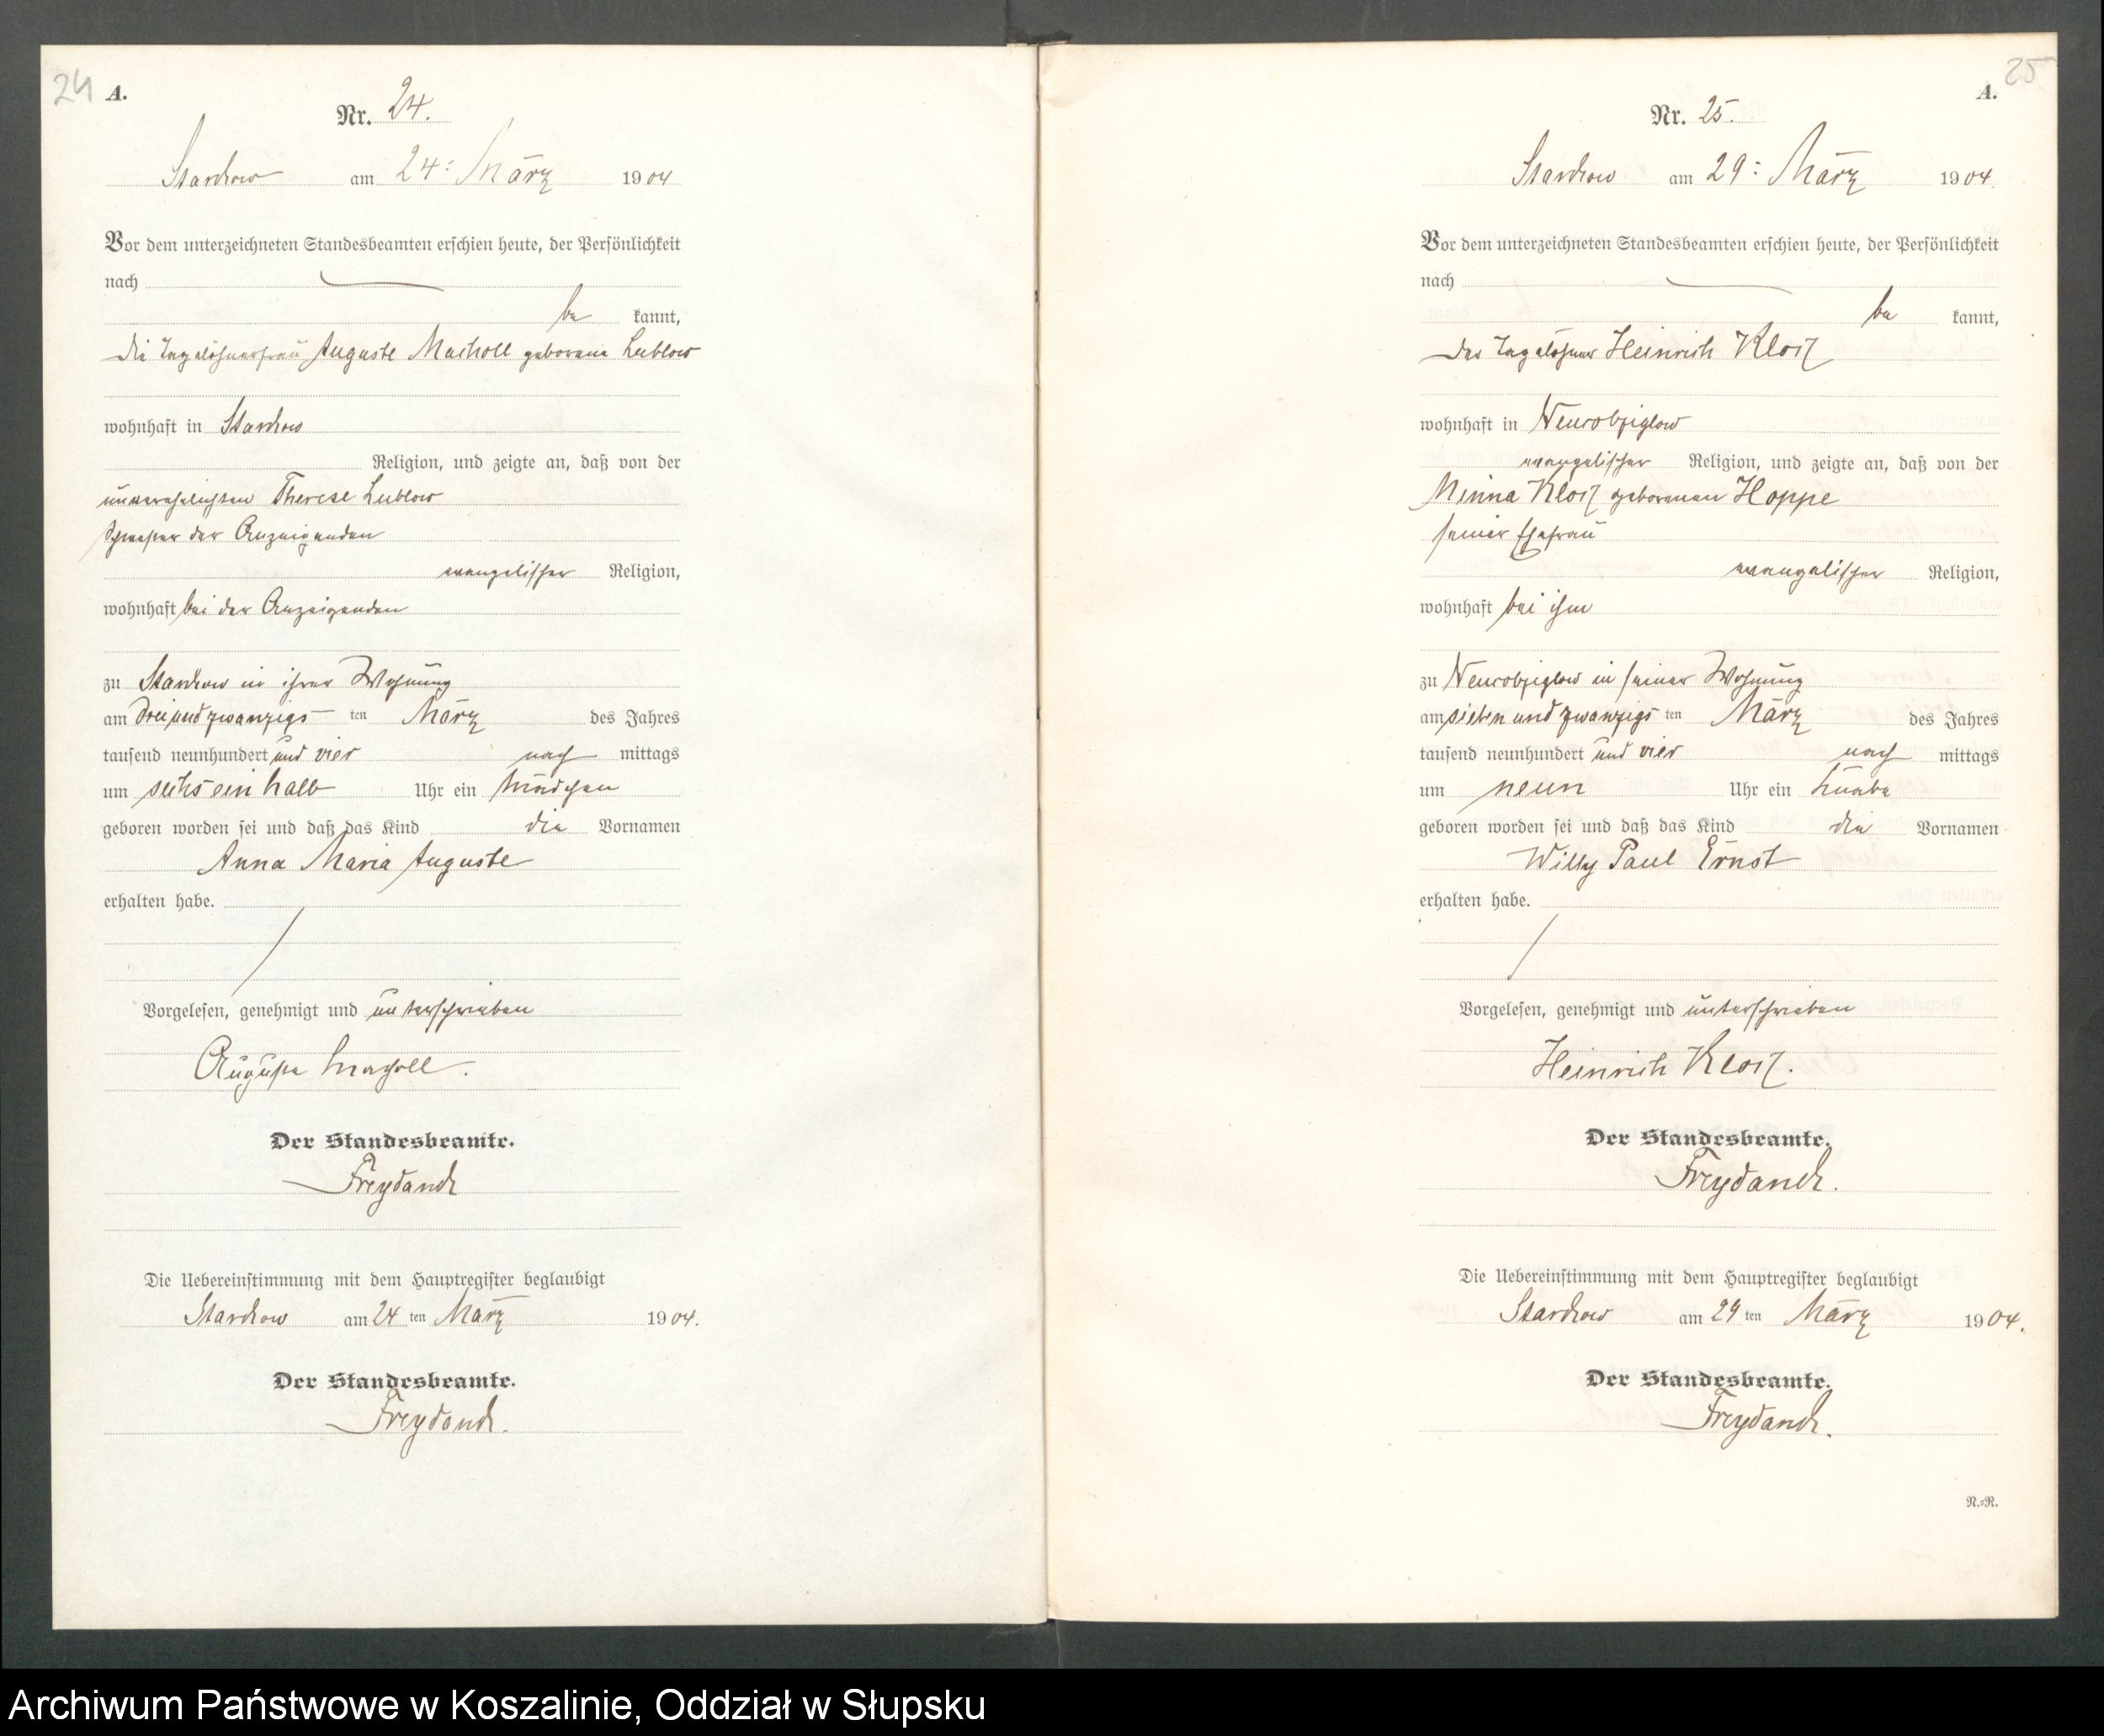 24
A.
Nr. 24.
Starkow am 24. März 1904
Vor dem unterzeichneten Standesbeamten erschien heute, der Persönlichkeit
nach
be kannt,
die Tagelöhnerfrau Auguste Macholl geborene Lublow
wohnhaft in Starkow
Religion, und zeigte an, daß von der
unverehelichten Therese Lublow
Schwester der Anzeigenden
evangelischer Religion,
wohnhaft bei der Anzeigenden
zu Starkow in ihrer Wohnung
am dreiundzwanzigsten März des Jahres
tausend neunhundert und vier nach mittags
um sechs ein halb Uhr ein Mädchen
geboren worden sei und daß das Kind die Vornamen
Anna Maria Auguste
erhalten habe.
Vorgelesen, genehmigt und unterschrieben
Auguste Macholl.
Der Standesbeamte.
Freydanck
Die Uebereinstimmung mit dem Hauptregister beglaubigt
Starkow am 24 ten März 1904.
Der Standesbeamte.
Freydanck.
25
A.
Nr. 25.
Starkow am 29. März 1904.
Vor dem unterzeichneten Standesbeamten erschien heute, der Persönlichkeit
nach
be kannt,
der Tagelöhner Heinrich Klotz
wohnhaft in Neurobziglow
evangelischer Religion, und zeigte an, daß von der
Minna Klotz geborenen Hoppe
seiner Ehefrau
evangelischer Religion,
wohnhaft bei ihm
zu Neurobziglow in seiner Wohnung
am sieben und zwanzigsten März des Jahres
tausend neunhundert und vier nach mittags
um neun Uhr ein Knabe
geboren worden sei und daß das Kind die Vornamen
Willy Paul Ernst
erhalten habe.
Vorgelesen, genehmigt und unterschrieben
Heinrich Klotz.
Der Standesbeamte.
Freydanck.
Die Uebereinstimmung mit dem Hauptregister beglaubigt
Starkow am 29 ten März 1904.
Der Standesbeamte.
Freydanck.
N.=R.
Archiwum Państwowe w Koszalinie, Oddział w Słupsku